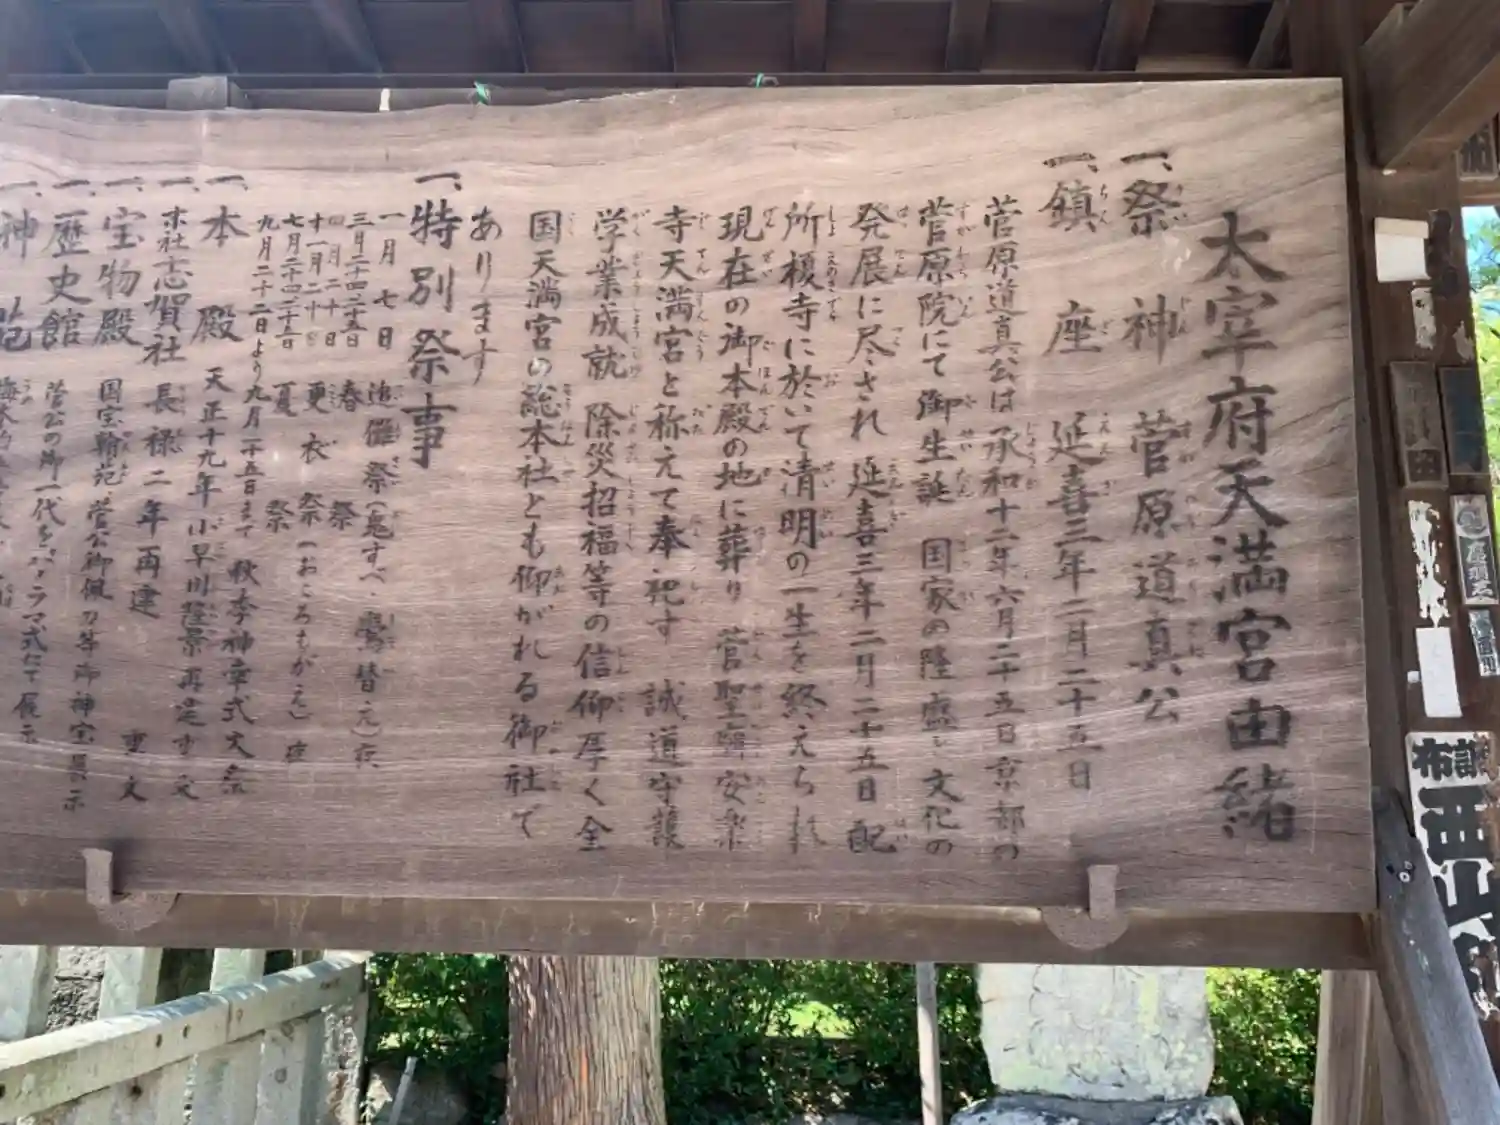 太宰府天満宮由緒
一、祭神 菅原道真公
一、鎮座 延喜三年二月二十五日
菅原道真公は承和十二年六月二十五日京都の
菅原院にて御生誕 国家の隆盛と文化の
発展に尽され 延喜三年二月二十五日 配
所榎寺に於いて清明の一生を終えられ
現在の御本殿の地に葬り 菅聖廟安楽
寺天満宮と称えて奉祀す 誠道守護
学業成就 除災招福等の信仰厚く全
国天満宮の総本社とも仰がれる御社で
あります
一、特別祭事
一月 七日 追儺祭(鬼すべ、鷽替え)夜
三月二十四二十五日 春祭
四月二十日
十一月二十日 更衣祭(おころもがえ)夜
七月二十四二十五日 夏祭
九月二十二日より九月二十五日まで 秋季神幸式大祭
一、本殿 天正十九年 小早川隆景 再建 重文
一、末社志賀社 長禄二年再建 重文
一、宝物殿 国宝翰苑 菅公御佩刀等御神宝展示
一、歴史館 菅公の御一代をパノラマ式にて展示
一、神苑
布
西山